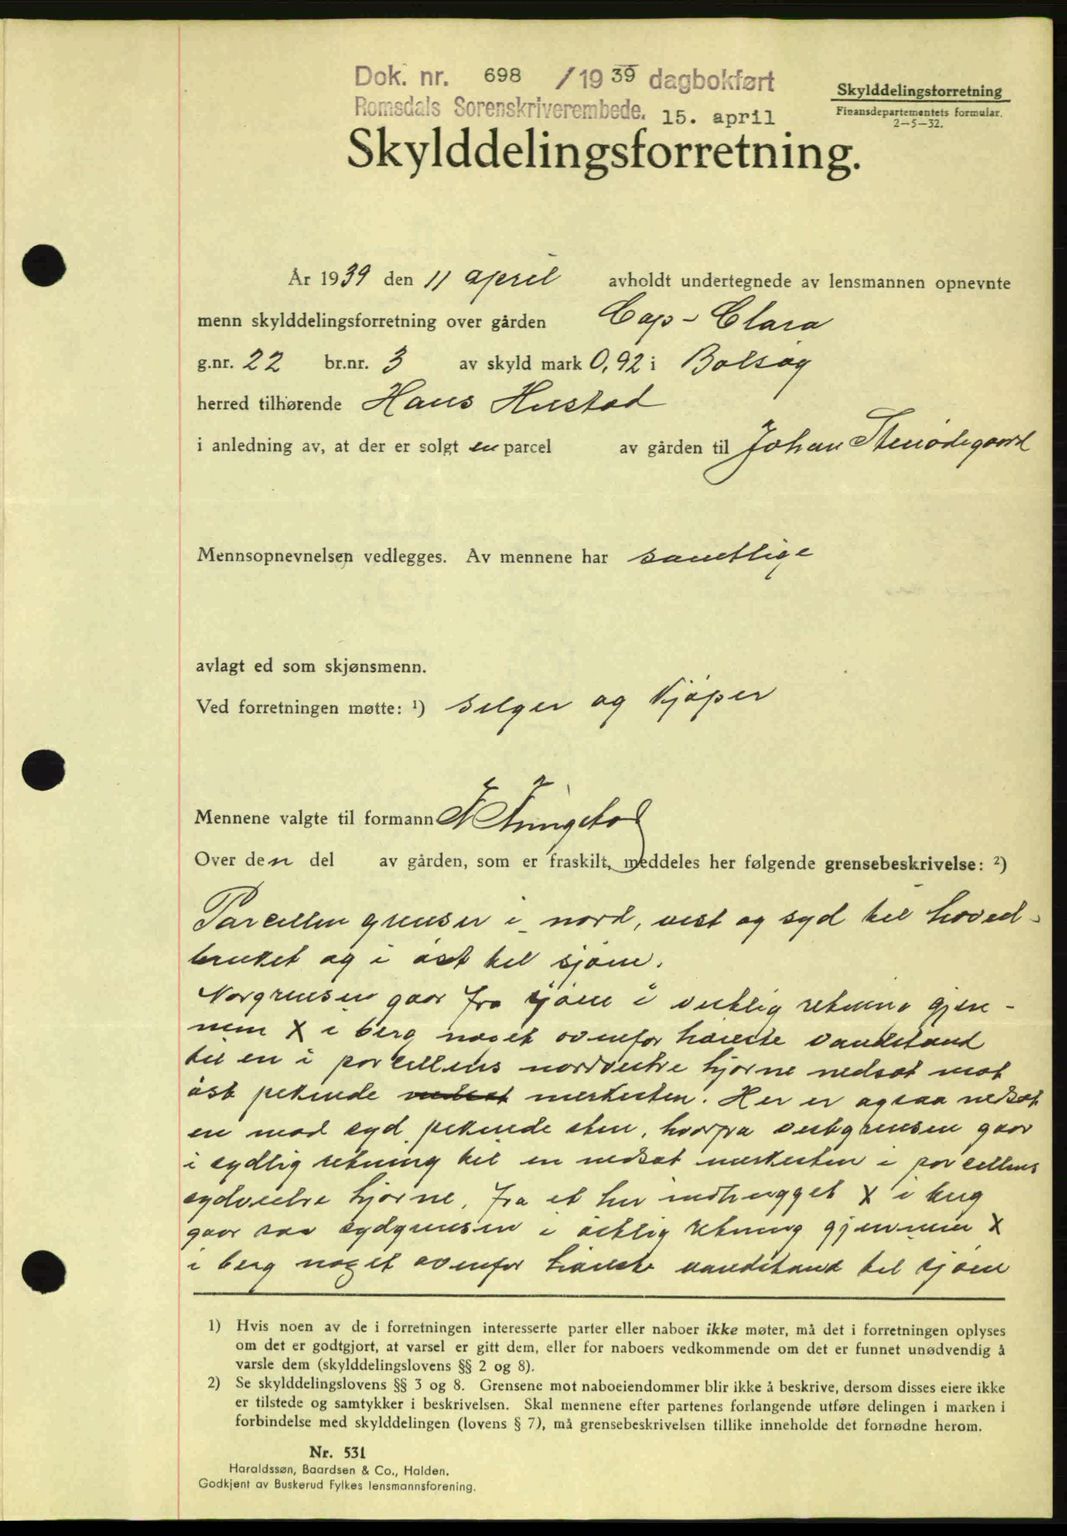 Dok. nr. 698 /1939 dagbokført
Romsdals Sorenskriverembede. 15. april
Skylddelingsforretning
Finansdepartementets formular.
2—5—32.
Skylddelingsforretning.
År 1939 den 11 april avholdt undertegnede av lensmannen opnevnte
menn skylddelingsforretning over gården Cap-Clara
g.nr. 22 br.nr. 3 av skyld mark 0,92 i Bolsøy
herred tilhørende Hans Hustad
i anledning av, at der er solgt en parcel av gården til Johan
Mennsopnevnelsen vedlegges. Av mennene har samtlige
avlagt ed som skjønsmenn.
Ved forretningen møtte: ¹) selger og kjøper
Mennene valgte til formann
Over den del av gården, som er fraskilt, meddeles her følgende grensebeskrivelse: ²)
Parcellen grenser i nord, vest og syd til hoved-
bruket og i øst til sjøen.
Norgrensen gaar fra sjøen i vestlig retning gjen-
nem X i berg noget ovenfor høieste vandstand
til en i parcellens nordvestre hjørne nedsat mot
øst pekende nedsat merkesten. Her er ogsaa nedsat
en mod syd pekende sten, hvorfra vestgrensen gaar
i sydlig retning til en nedsat merkesten i parcellens
sydvestre hjørne, fra et her indhugget X i berg
gaar saa sydgrensen i østlig retning gjennem X
i berg noget ovenfor høieste vandstand til sjøen
1) Hvis noen av de i forretningen interesserte parter eller naboer ikke møter, må det i forretningen oplyses
om det er godtgjort, at varsel er gitt dem, eller for naboers vedkommende om det er funnet unødvendig å
varsle dem (skylddelingslovens §§ 2 og 8).
2) Se skylddelingslovens §§ 3 og 8. Grensene mot naboeiendommer blir ikke å beskrive, dersom disses eiere ikke
er tilstede og samtykker i beskrivelsen. Skal mennene efter partenes forlangende utføre delingen i marken i
forbindelse med skylddelingen (lovens § 7), må grensebeskrivelsen tillike inneholde det fornødne herom.
Nr. 531
Haraldssøn, Baardsen & Co., Halden.
Godkjent av Buskerud Fylkes lensmannsforening.